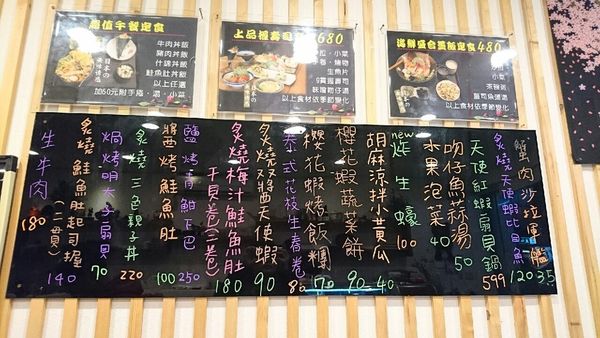 超值午餐定食
牛肉丼飯
豬肉丼飯
什錦丼飯
鮭魚肚丼飯
以上任選
加60元附手捲、湯、小菜
上品 680
小菜
生魚片
9貫握壽司
味噌蛤仔湯
以上食材依季節變化
海鮮盛合蓋飯定食480
小菜
茶碗蒸
以上食材依季節變化
蟹肉沙拉軍艦 35
炙燒天使蝦比目魚 120
天使紅蝦扇貝鍋 599
吻仔魚蒜湯 50
水果泡菜 40
new 炸生蠔 100
胡麻涼拌小黃瓜 40
櫻花蝦蔬菜餅 90
櫻花蝦烤飯糰 70
泰式花枝生春卷 80
炙燒明太子醬天使蝦 90
炙燒梅汁鮭魚肚干貝卷(三卷) 180
鹽烤青魽下巴 250
醬烤鮭魚肚 100
炙燒三色親子丼 220
焗烤明太子扇貝 70
炙燒鮭魚肚起司握(二貫) 140
生牛肉 180